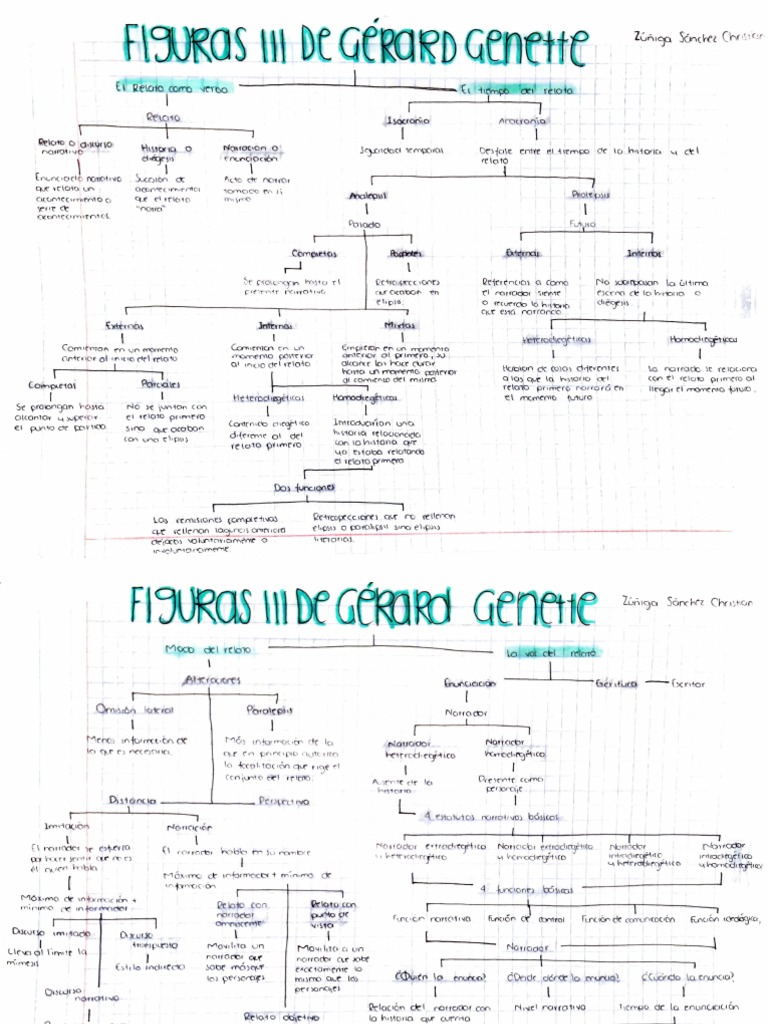 FIGURAS III DE GÉRARD GENETTE
Zúñiga Sánchez Christian
El Relato como verbo
El tiempo del relato
Relato
Isocronía
Anacronía
Relato o discurso
narrativo
Historia o
diégesis
Narración o
enunciación
Igualdad temporal
Desfase entre el tiempo de la historia y del
relato
Enunciado narrativo
que relata un
acontecimiento o
serie de
acontecimientos.
Sucesión de
acontecimientos
que el relato
"narra"
Acto de narrar
tomado en sí
mismo
Analepsis
Prolepsis
Pasado
Futuro
Completas
Parciales
Externas
Internas
Se prolongan hasta el
presente narrativo
Retrospecciones
que acaban en
elipsis
Referencias a como
el narrador siente
o recuerda la historia
que está narrando
No sobrepasan la última
escena de la historia o
diégesis
Externas
Internas
Mixtas
Heterodiegéticas
Homodiegéticas
Comienzan en un momento
anterior al inicio del relato
Comienzan en un
momento posterior
al inicio del relato
Empiezan en un momento
anterior al primero, su
alcance las hace durar
hasta un momento posterior
al comienzo del mismo
Hablan de cosas diferentes
a las que la historia del
relato primero narrará en
el momento futuro
La narrado se relaciona
con el relato primero al
llegar el momento futuro.
Completas
Parciales
Heterodiegéticas
Homodiegéticas
Se prolongan hasta
alcanzar y superar
el punto de partida
No se juntan con
el relato primero
sino que acaban
con una elipsis
Contenido diegético
diferente al del
relato primero
Introducirían una
historia relacionada
con la historia que
ya estaba relatando
el relato primero
Dos funciones
Las remisiones completivas
que rellenan lagunas anteriores
dejadas voluntariamente o
involuntariamente.
Retrospecciones que no rellenan
elipsis o paralipsis sino elipsis
iterativas.
FIGURAS III DE GÉRARD GENETTE
Zúñiga Sánchez Christian
Modo del relato
La voz del relato
Alteraciones
Enunciación
Escritura
Escritor
Omisión lateral
Paralepsis
Narrador
Menos información de
la que es necesaria.
Más información de la
que en principio autoriza
la focalización que rige el
conjunto del relato.
Narrador
heterodiegético
Narrador
homodiegético
Ausente de la
historia
Presente como
personaje
Distancia
Perspectiva
4 estatutos narrativos básicos
Imitación
Narración
El narrador se esfuerza
por hacer sentir que no es
él quien habla
El narrador habla en su nombre
Narrador extradiegético
y heterodiegético
Narrador extradiegético
y homodiegético
Narrador
intradiegético
y heterodiegético
Narrador
intradiegético
y homodiegético
Máximo de información + mínimo de
información
4 funciones básicas
Máximo de información +
mínimo de informador
Relato con
narrador
omnisciente
Relato con
punto de
vista
Función narrativa
Función de control
Función de comunicación
Función ideológica
Discurso imitado
Discurso
transpuesto
Narrador
Lleva al límite la
mímesis
Estilo indirecto
Moviliza un
narrador que
sabe más que
los personajes
Moviliza a un
narrador que sabe
exactamente lo
mismo que los
personajes
¿Quién la enuncia?
¿Desde dónde la enuncia?
¿Cuándo la enuncia?
Discurso
narrativo
Relación del narrador con
la historia que cuenta
Nivel narrativo
Tiempo de la enunciación
Relato objetivo